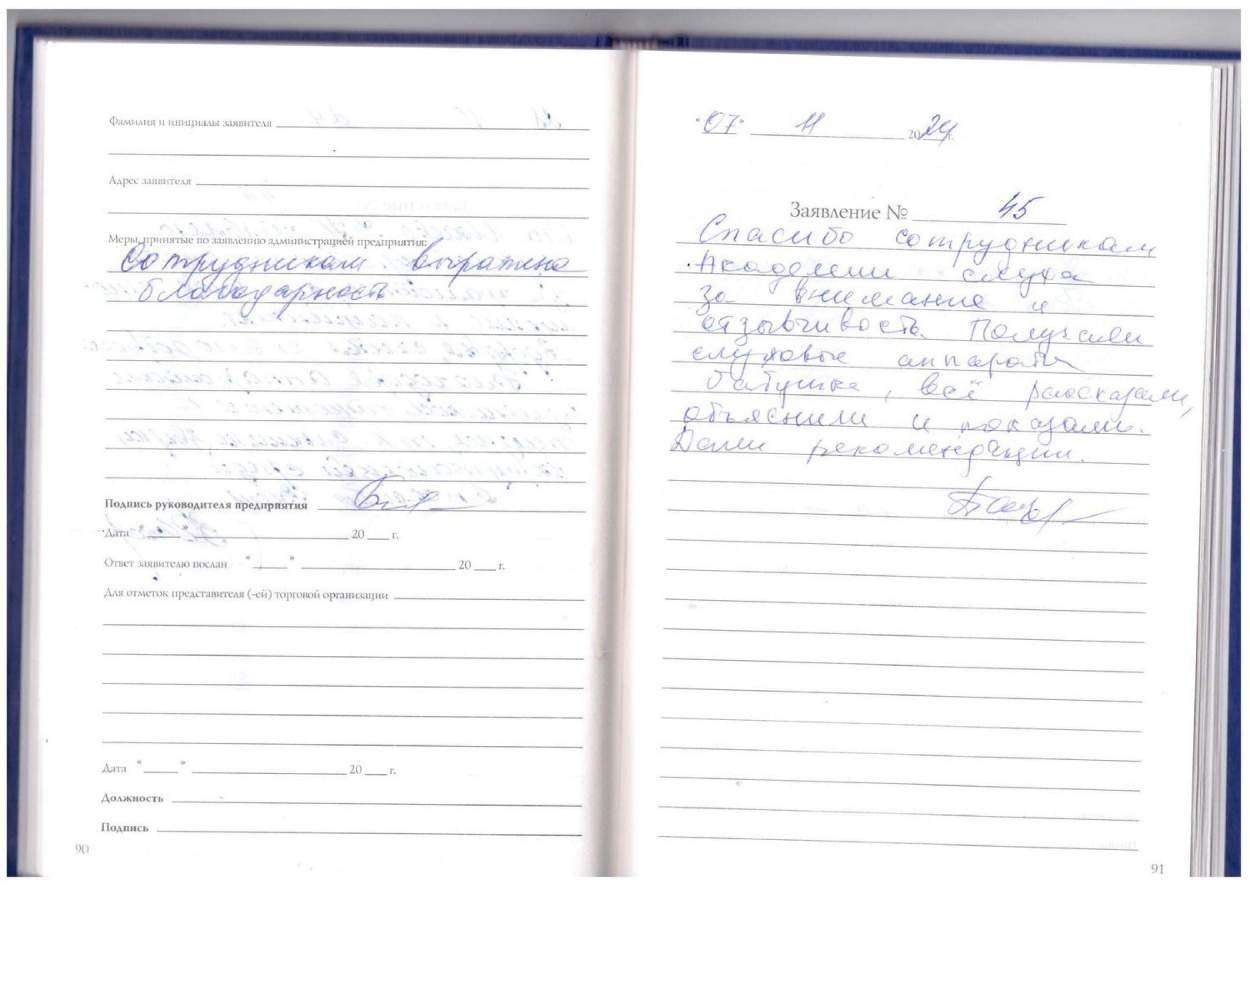 Фамилия и инициалы заявителя
Адрес заявителя
Меры, принятые по заявлению администрацией предприятия:
Сотрудникам выражена
благодарность
Подпись руководителя предприятия
Дата 20 г.
Ответ заявителю послан " " 20 г.
Для отметок представителя (-ей) торговой организации
Дата " " 20 г.
Должность
Подпись
90
"07" 11 2024 г.
Заявление № 45
Спасибо сотрудникам
Академии слуха
за внимание и
отзывчивость. Получали
слуховые аппараты
бабушке, всё рассказали,
объяснили и показали.
Дали рекомендации.
91